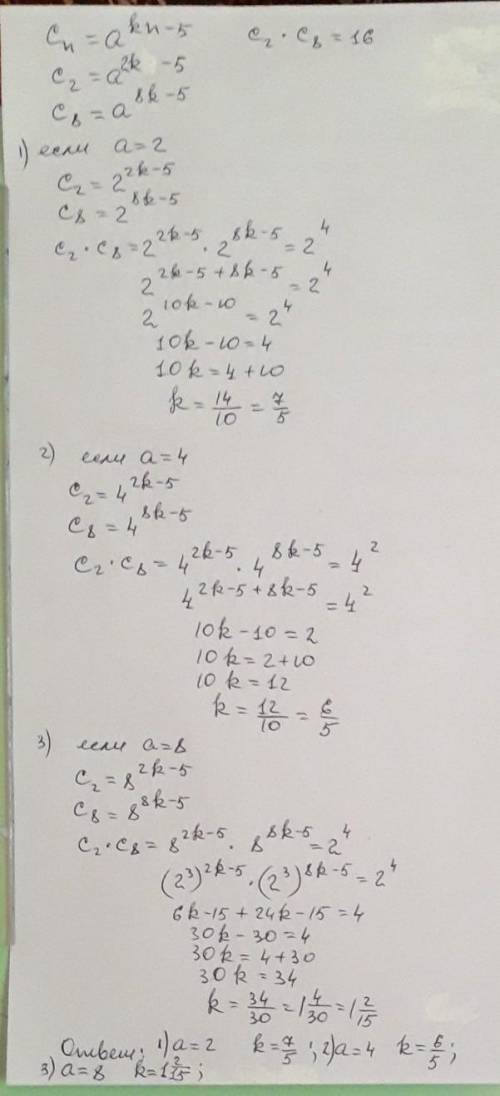 cₙ = a^(kn-5)   c₂ · c₈ = 16
c₂ = a^(2k-5)
c₈ = a^(8k-5)
1) если a=2
c₂ = 2^(2k-5)
c₈ = 2^(8k-5)
c₂ · c₈ = 2^(2k-5) · 2^(8k-5) = 2^4
2^(2k-5+8k-5) = 2^4
2^(10k-10) = 2^4
10k-10=4
10k=4+10
k = 14/10 = 7/5
2) если a=4
c₂ = 4^(2k-5)
c₈ = 4^(8k-5)
c₂ · c₈ = 4^(2k-5) · 4^(8k-5) = 4^2
4^(2k-5+8k-5) = 4^2
10k-10=2
10k=2+10
10k=12
k = 12/10 = 6/5
3) если a=8
c₂ = 8^(2k-5)
c₈ = 8^(8k-5)
c₂ · c₈ = 8^(2k-5) · 8^(8k-5) = 2^4
(2^3)^(2k-5) · (2^3)^(8k-5) = 2^4
6k-15+24k-15=4
30k-30=4
30k=4+30
30k=34
k = 34/30 = 1 4/30 = 1 2/15
Ответ: 1) a=2 k=7/5; 2) a=4 k=6/5;
3) a=8 k=1 2/15;